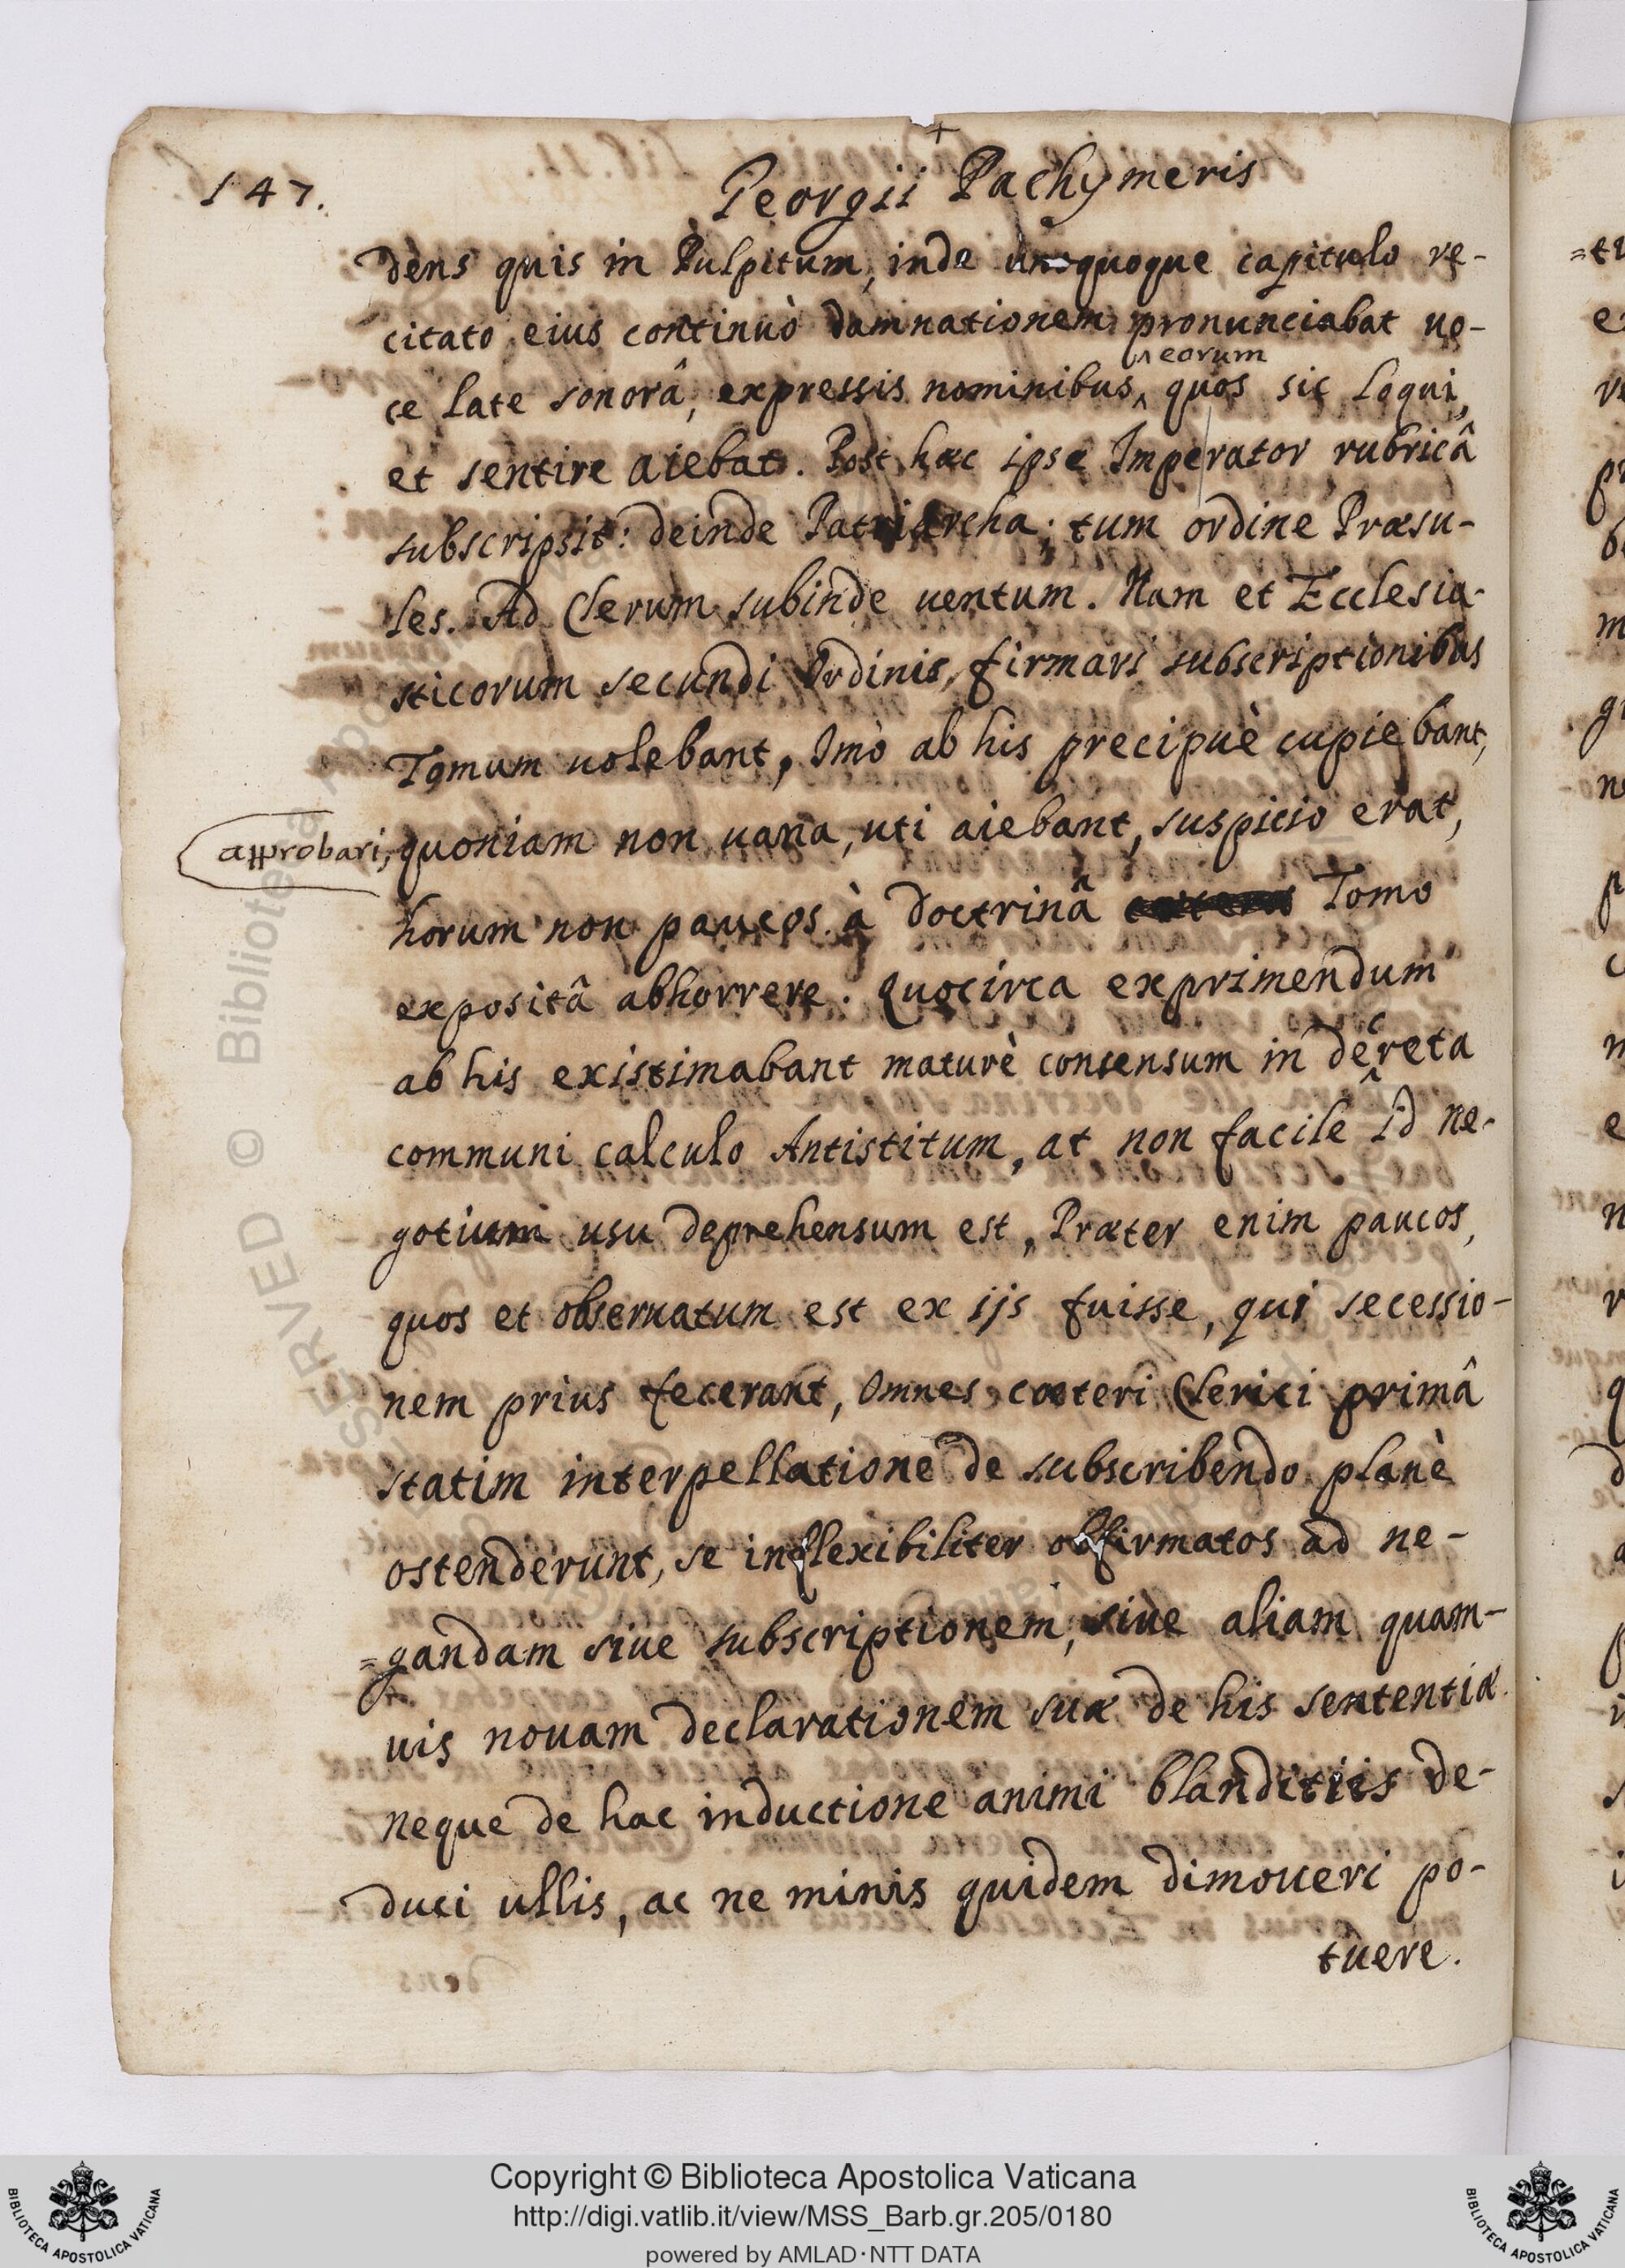 147.
Georgii Pachymeris
dens quis in Pulpitum, inde unoquoque capitulo re-
citato eius continuò damnationem pronunciabat uo-
ce late sonorâ, expressis nominibus ^ eorum quos sic loqui,
et sentire aiebat. Post hæc ipse Imperator rubricâ
subscripsit: deinde Patriarcha; tum ordine Præsu-
les. Ad Clerum subinde uentum. Nam et Ecclesia-
sticorum secundi Ordinis, firmari subscriptionibus
Tomum uolebant, Imò ab his precipuè cupiebant,
approbari, quoniam non uana, uti aiebant, suspicio erat,
horum non paucos à doctrinâ Tomo
expositâ abhorrere. Quocirca exprimendum
ab his existimabant maturè consensum in decreta
communi calculo Antistitum, at non facile id ne-
gotium usu deprehensum est, Præter enim paucos,
quos et obseruatum est ex ijs fuisse, qui secessio-
nem prius fecerant, Omnes cæteri Clerici primâ
statim interpellatione de subscribendo planè
ostenderunt, se inflexibiliter obfirmatos ad ne-
=gandam siue subscriptionem, siue aliam quam-
uis nouam declarationem suæ de his sententiæ.
neque de hac inductione animi blanditiis de-
duci ullis, ac ne minis quidem dimoueri po-
tuere.
Copyright © Biblioteca Apostolica Vaticana
http://digi.vatlib.it/view/MSS_Barb.gr.205/0180
powered by AMLAD·NTT DATA
BIBLIOTECA APOSTOLICA VATICANA
BIBLIOTECA APOSTOLICA VATICANA